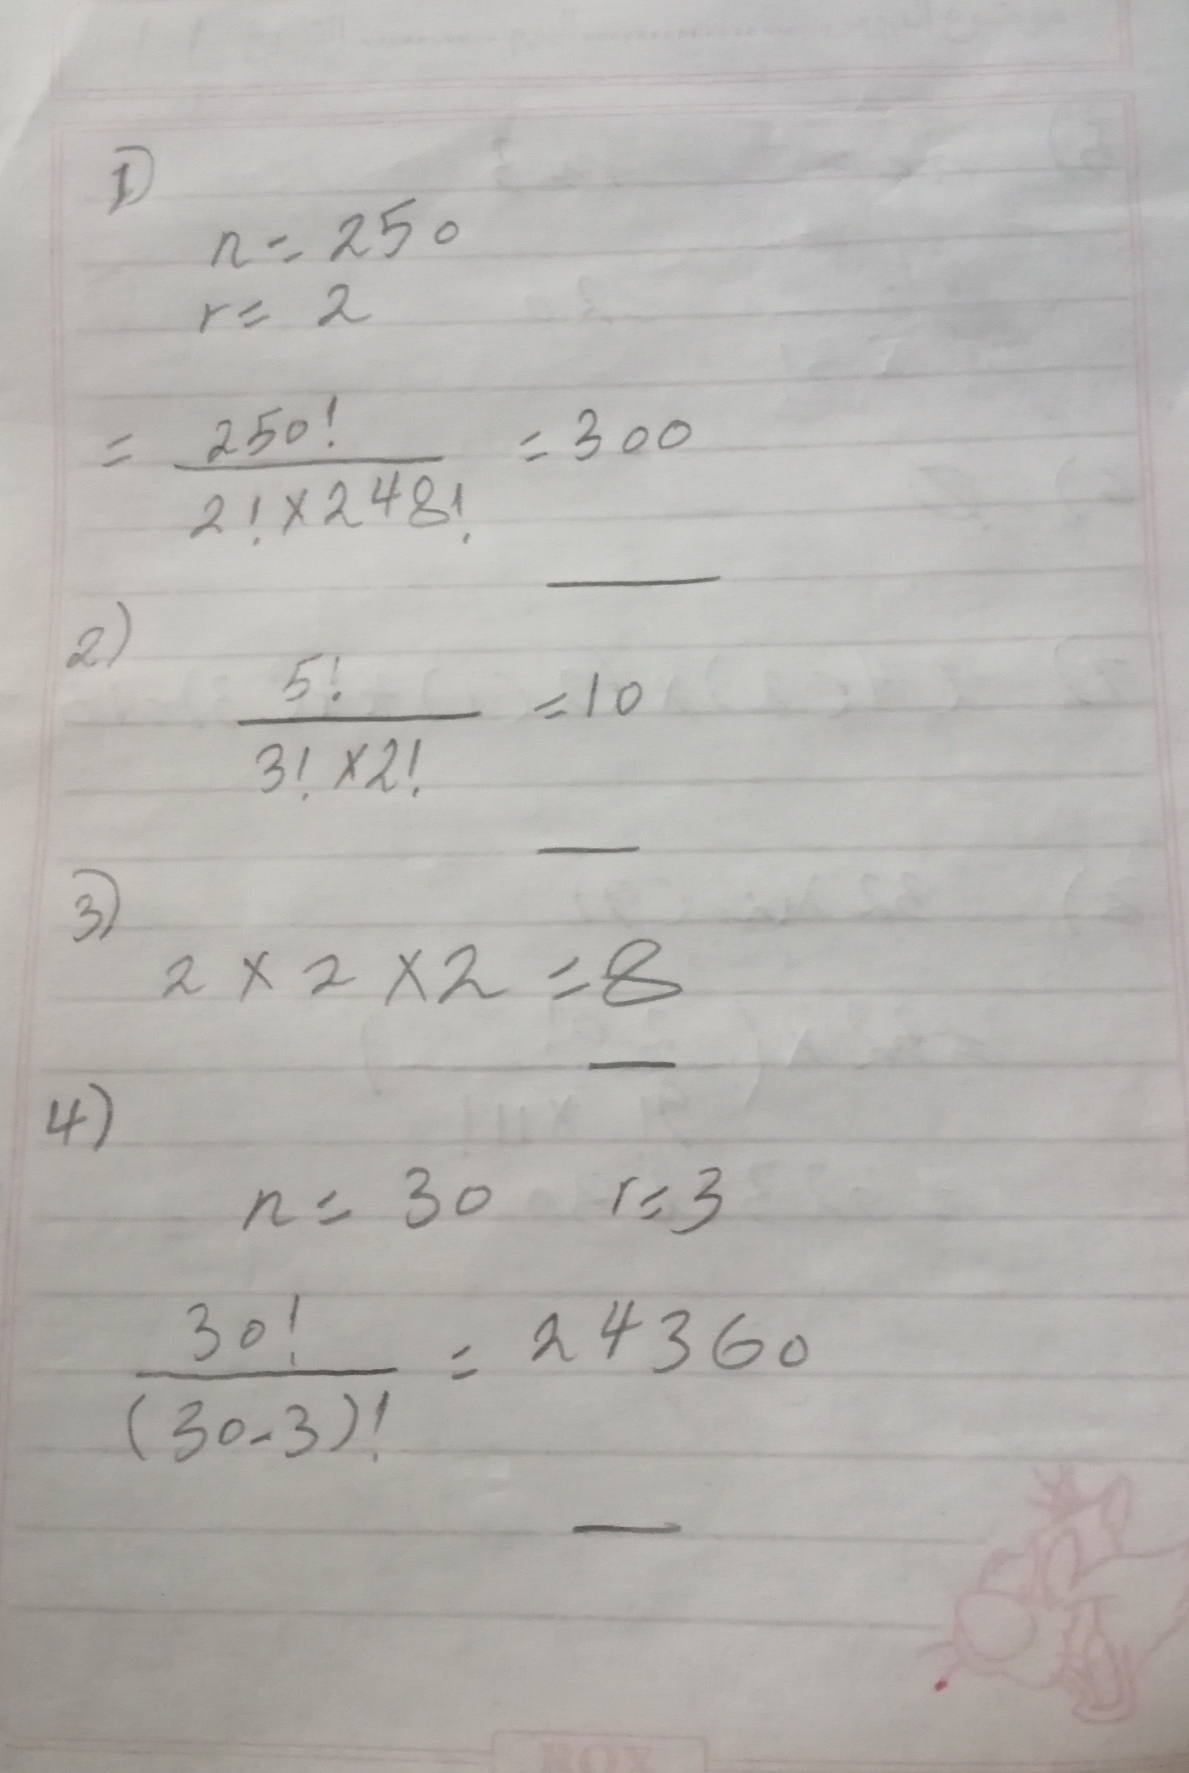 1)
n = 250
r = 2
= 250! / 2! × 248! = 300
2)
5! / 3! × 2! = 10
3)
2 × 2 × 2 = 8
4)
n = 30 r = 3
30! / (30-3)! = 24360
BOX